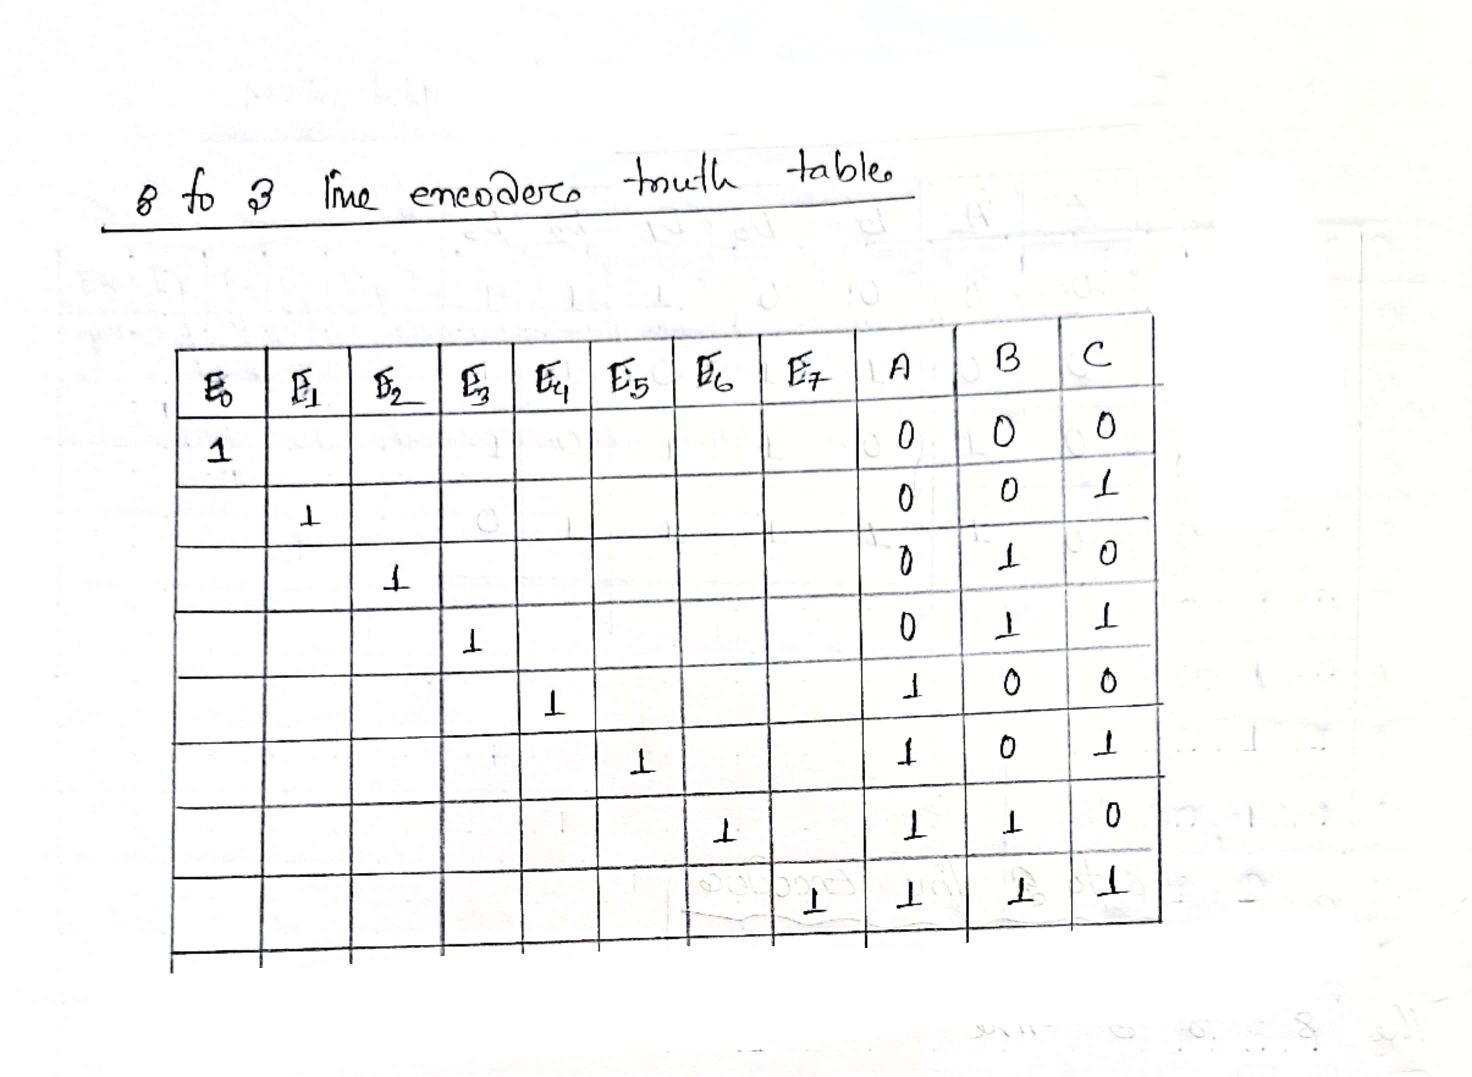 8 to 3 line encoder truth table
E0 E1 E2 E3 E4 E5 E6 E7 A B C
1 0 0 0
1 0 0 1
1 0 1 0
1 0 1 1
1 1 0 0
1 1 0 1
1 1 1 0
1 1 1 1